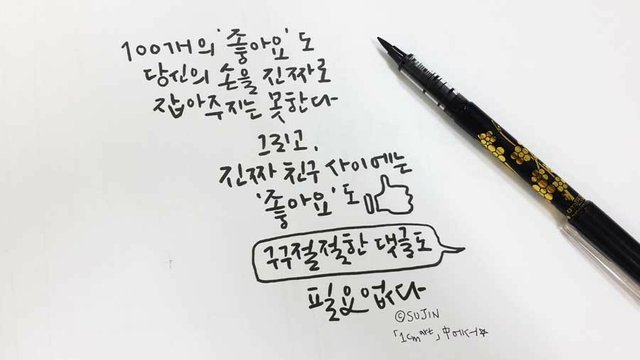 100개의 '좋아요'도
당신의 손을 진짜로
잡아주지는 못한다
그리고,
진짜 친구 사이에는
'좋아요'도
구구절절한 댓글도
필요없다
©SUJIN
「1cm art」中에서☆